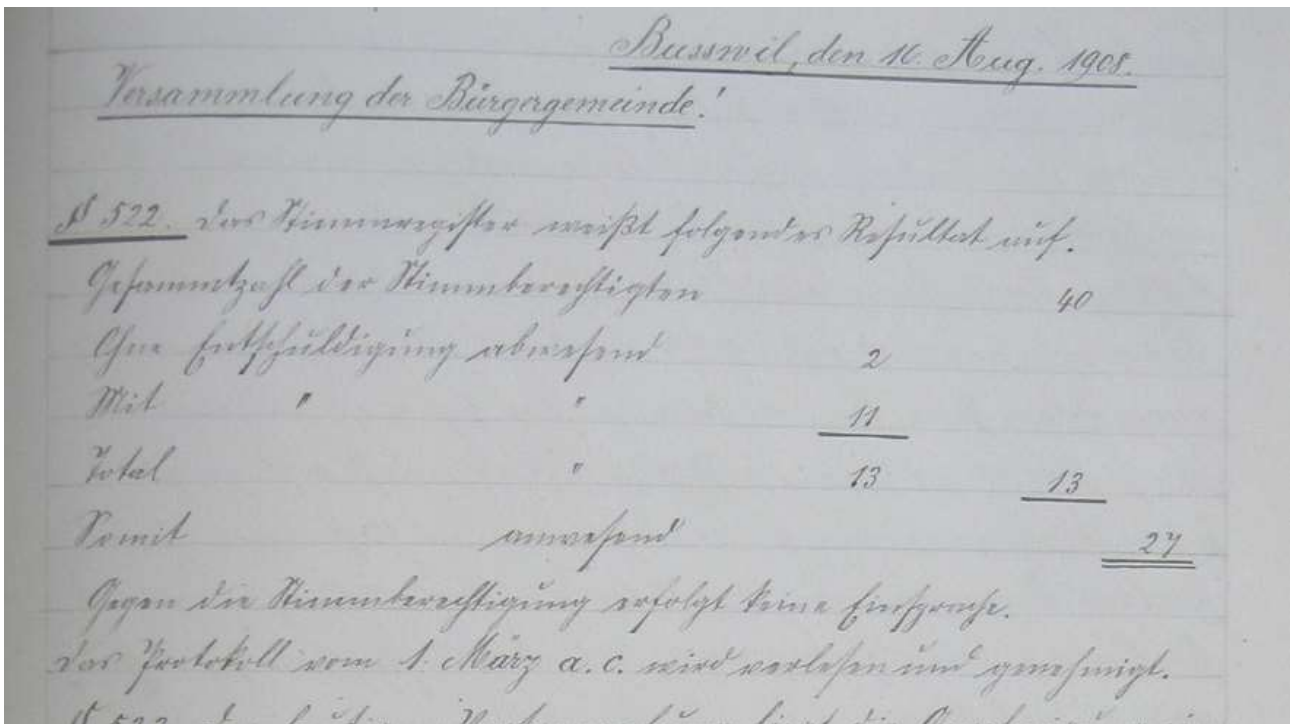 Busswil, den 16. Aug. 1908.
Versammlung der Bürgergemeinde!
§ 522. Das Stimmregister weißt folgendes Resultat auf.
Gesammtzahl der Stimmberechtigten 40
Ohne Entschuldigung abwesend 2
Mit " " 11
Total " 13 13
Somit anwesend 27
Gegen die Stimmberechtigung erfolgt keine Einsprache.
Das Protokoll vom 1. März a. c. wird verlesen und genehmigt.